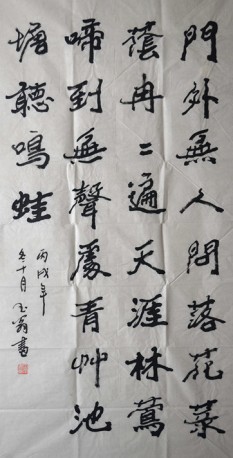 門外無人問落花菉
蔭冉〻遍天涯林鶯
啼到無聲處青艸池
塘聽鳴蛙
丙戌年
冬十月 翁書